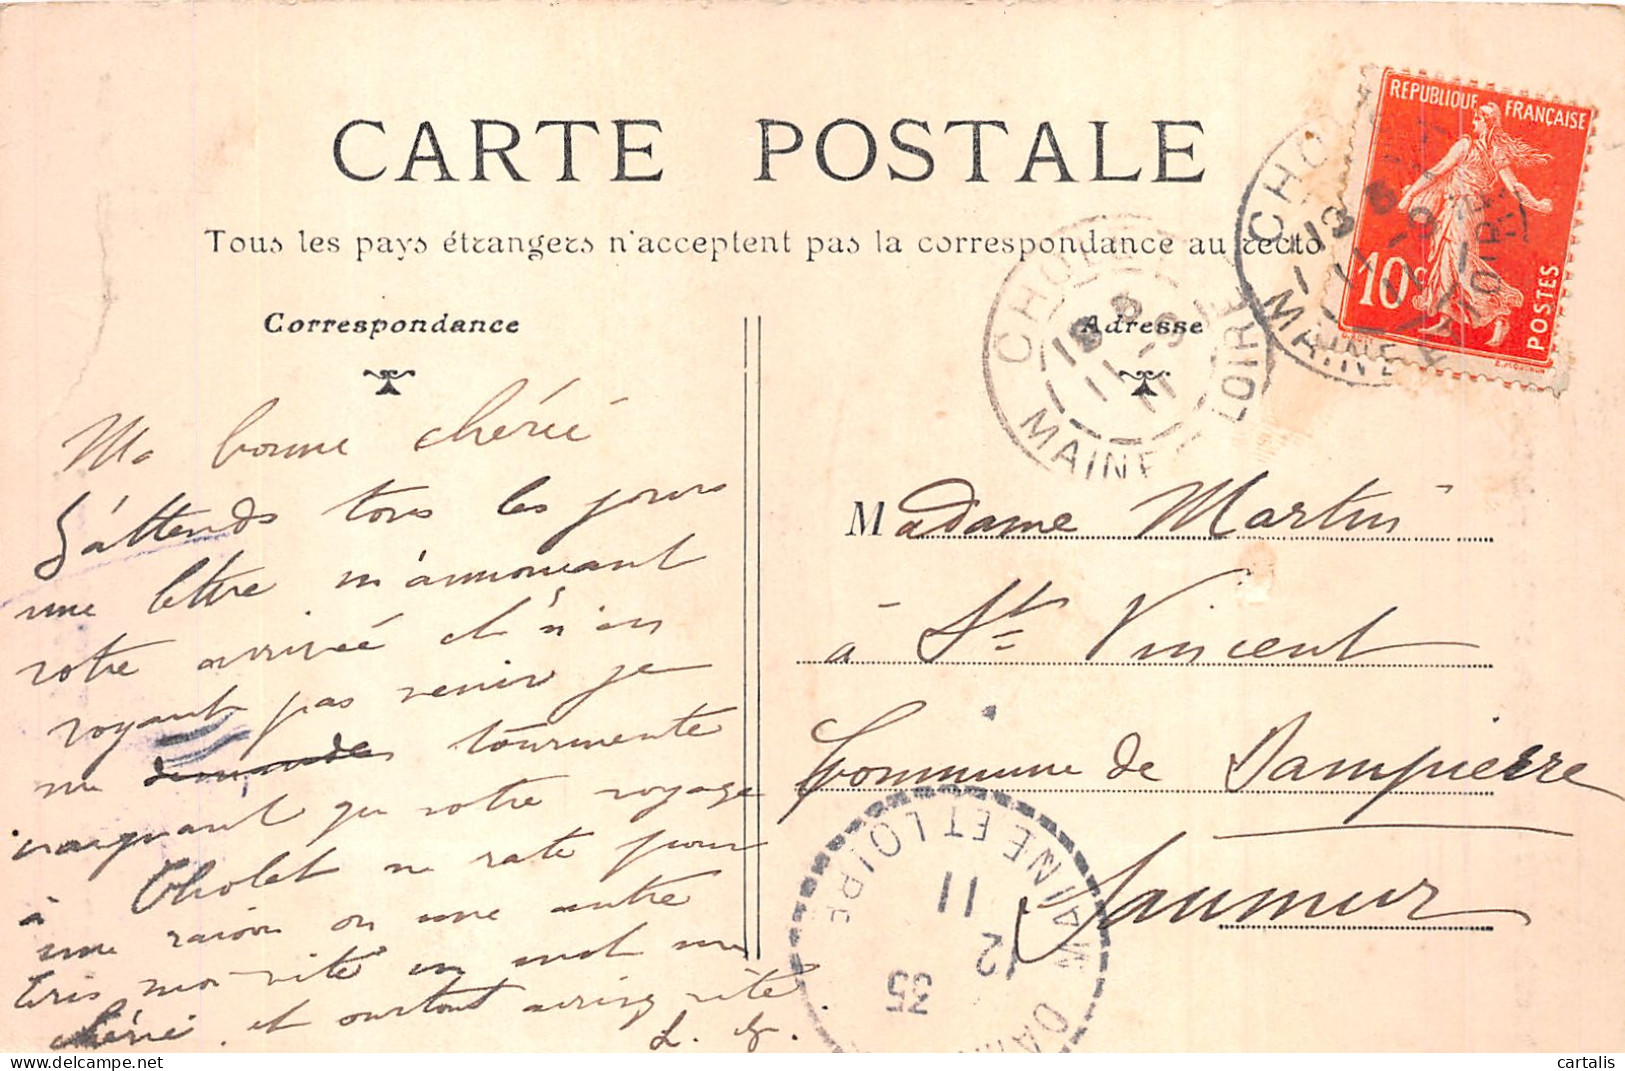 CARTE POSTALE
Tous les pays étrangers n'acceptent pas la correspondance au recto
Correspondance
Ma bonne chérie
J'attends tous les jours
une lettre m'annonçant
votre arrivée et n'en
voyant pas venir je
me demandes tourmente
craignant que votre voyage
à Cholet ne rate pour
une raison ou une autre
Ecris moi vite un mot ma
chérie et surtout arrivez vite.
L. G.
Adresse
Madame Martin
à St Vincent
Commune de Dampierre
Saumur
REPUBLIQUE FRANÇAISE
10c
POSTES
CHOLET
11-9
11
MAINE ET LOIRE
CHOLET
11-9
11
MAINE - LOIRE
MAINE ET LOIRE
11
12
35
DAM
cartalis